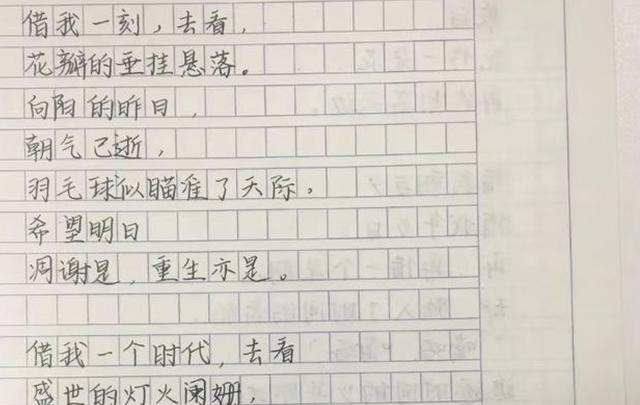 借我一刻，去看，
花瓣的垂挂悬落。
向阳的昨日，
朝气已逝，
羽毛球似瞄准了天际，
希望明日
凋谢是，重生亦是。
借我一个时代，去看
盛世的灯火阑姗，